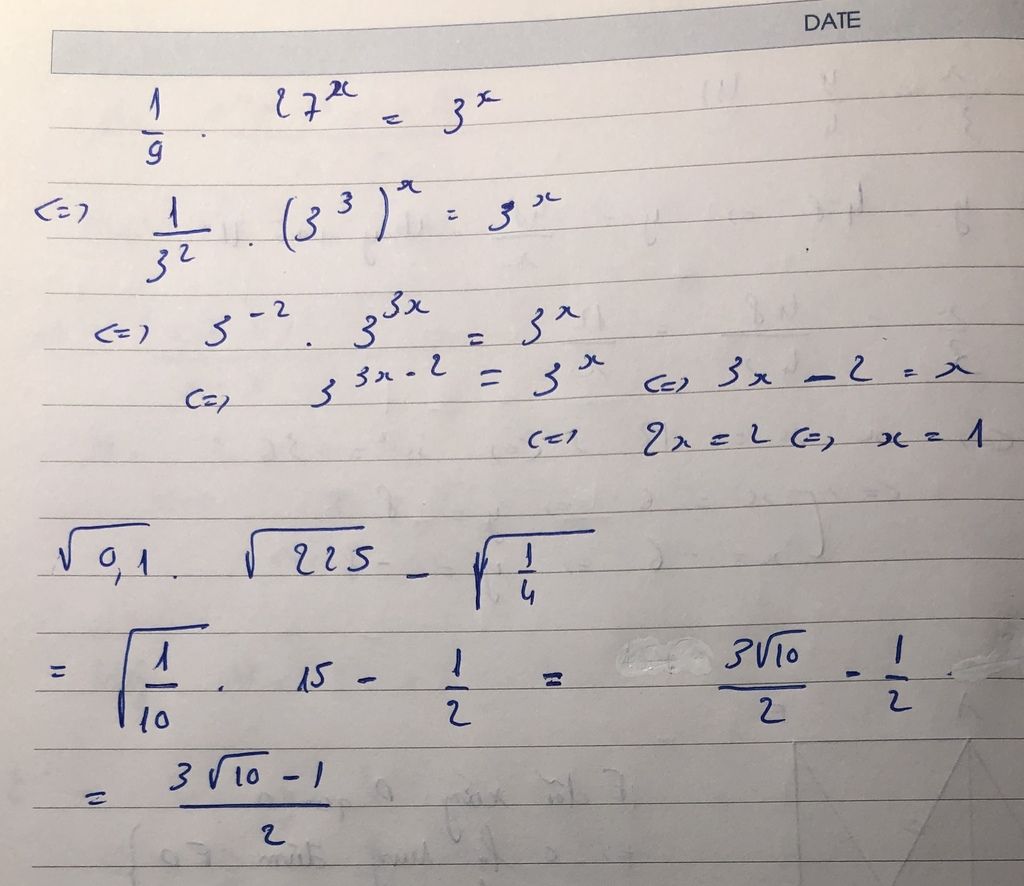 DATE
1/9 . 27^x = 3^x
<=> 1/3^2 . (3^3)^x = 3^x
<=> 3^-2 . 3^3x = 3^x
<=> 3^3x-2 = 3^x <=> 3x - 2 = x
<=> 2x = 2 <=> x = 1
√0,1 . √225 - √1/4
= √1/10 . 15 - 1/2 = 3√10/2 - 1/2
= 3√10 - 1/2